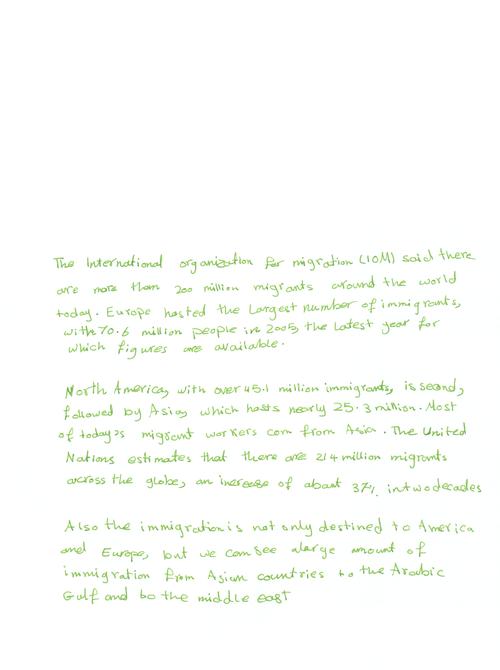 The International organization for migration (IOM) said there
are more than 200 million migrants around the world
today. Europe hosted the Largest number of immigrants,
with 70.6 million people in 2005, the Latest year for
which figures are available.
North America, with over 45.1 million immigrants, is second,
followed by Asia, which hosts nearly 25.3 million. Most
of today's migrant workers com from Asia. The United
Nations estimates that there are 214 million migrants
across the globe, an increase of about 37% in two decades
Also the immigration is not only destined to America
and Europe, but we can see a large amount of
immigration from Asian countries to the Arabic
Gulf and to the middle east